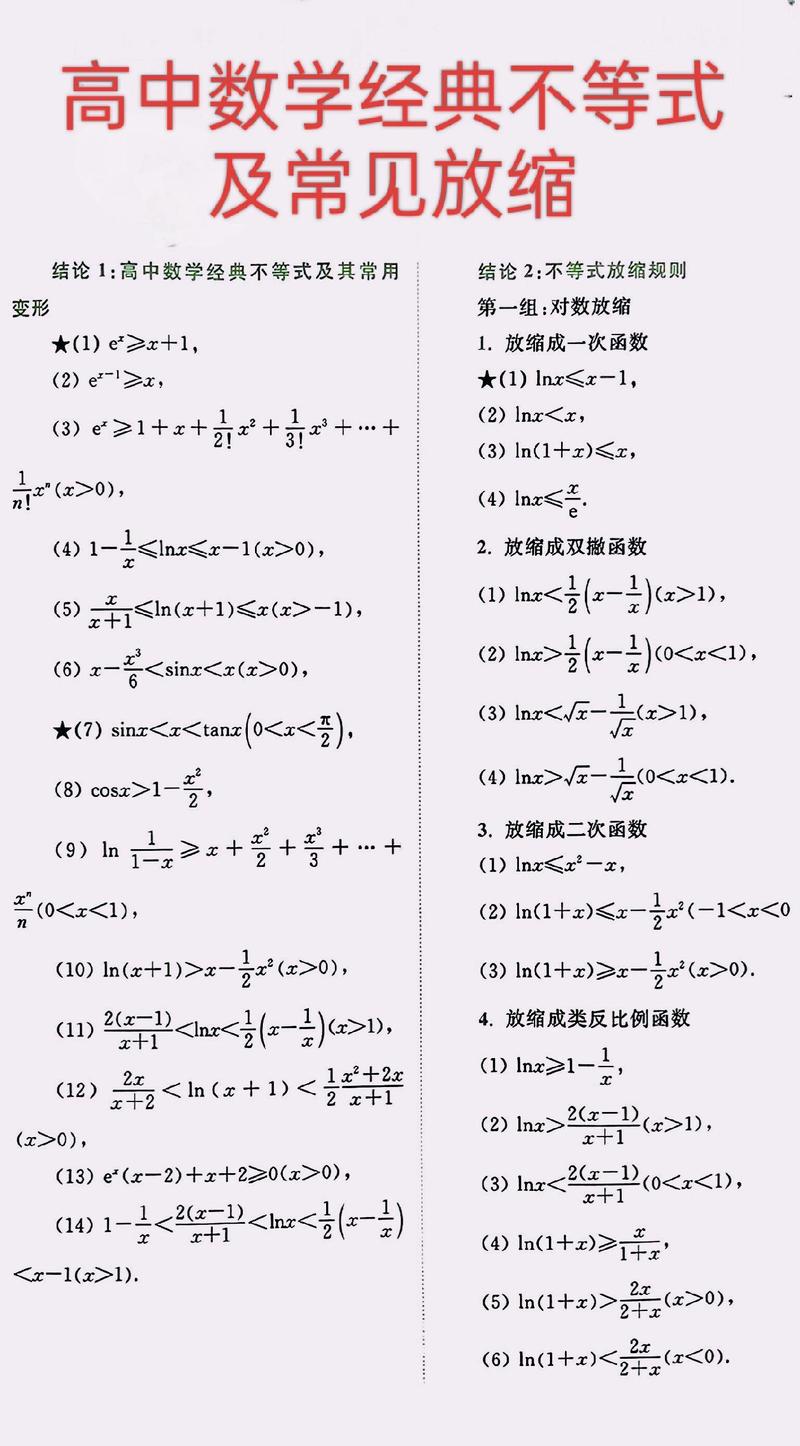 高中数学经典不等式
及常见放缩
结论 1:高中数学经典不等式及其常用
变形
★(1) eˣ⩾x+1,
(2) eˣ⁻¹⩾x,
(3) eˣ⩾1+x+\frac{1}{2!}x²+\frac{1}{3!}x³+⋯+
\frac{1}{n!}xⁿ(x>0),
(4) 1-\frac{1}{x}⩽lnx⩽x-1(x>0),
(5) \frac{x}{x+1}⩽ln(x+1)⩽x(x>-1),
(6) x-\frac{x³}{6}<sinx<x(x>0),
★(7) sinx<x<tanx(0<x<\frac{π}{2}),
(8) cosx>1-\frac{x²}{2},
(9) ln \frac{1}{1-x}⩾x+\frac{x²}{2}+\frac{x³}{3}+⋯+
\frac{xⁿ}{n}(0<x<1),
(10) ln(x+1)>x-\frac{1}{2}x²(x>0),
(11) \frac{2(x-1)}{x+1}<lnx<\frac{1}{2}(x-\frac{1}{x})(x>1),
(12) \frac{2x}{x+2}<ln(x+1)<\frac{1}{2}\frac{x²+2x}{x+1}
(x>0),
(13) eˣ(x-2)+x+2⩾0(x>0),
(14) 1-\frac{1}{x}<\frac{2(x-1)}{x+1}<lnx<\frac{1}{2}(x-\frac{1}{x})
<x-1(x>1).
结论 2:不等式放缩规则
第一组:对数放缩
1. 放缩成一次函数
★(1) lnx⩽x-1,
(2) lnx<x,
(3) ln(1+x)⩽x,
(4) lnx⩽\frac{x}{e}.
2. 放缩成双撇函数
(1) lnx<\frac{1}{2}(x-\frac{1}{x})(x>1),
(2) lnx>\frac{1}{2}(x-\frac{1}{x})(0<x<1),
(3) lnx<√x-\frac{1}{√x}(x>1),
(4) lnx>√x-\frac{1}{√x}(0<x<1).
3. 放缩成二次函数
(1) lnx⩽x²-x,
(2) ln(1+x)⩽x-\frac{1}{2}x²(-1<x<0
(3) ln(1+x)⩾x-\frac{1}{2}x²(x>0).
4. 放缩成类反比例函数
(1) lnx⩾1-\frac{1}{x},
(2) lnx>\frac{2(x-1)}{x+1}(x>1),
(3) lnx<\frac{2(x-1)}{x+1}(0<x<1),
(4) ln(1+x)⩾\frac{x}{1+x},
(5) ln(1+x)>\frac{2x}{2+x}(x>0),
(6) ln(1+x)<\frac{2x}{2+x}(x<0).